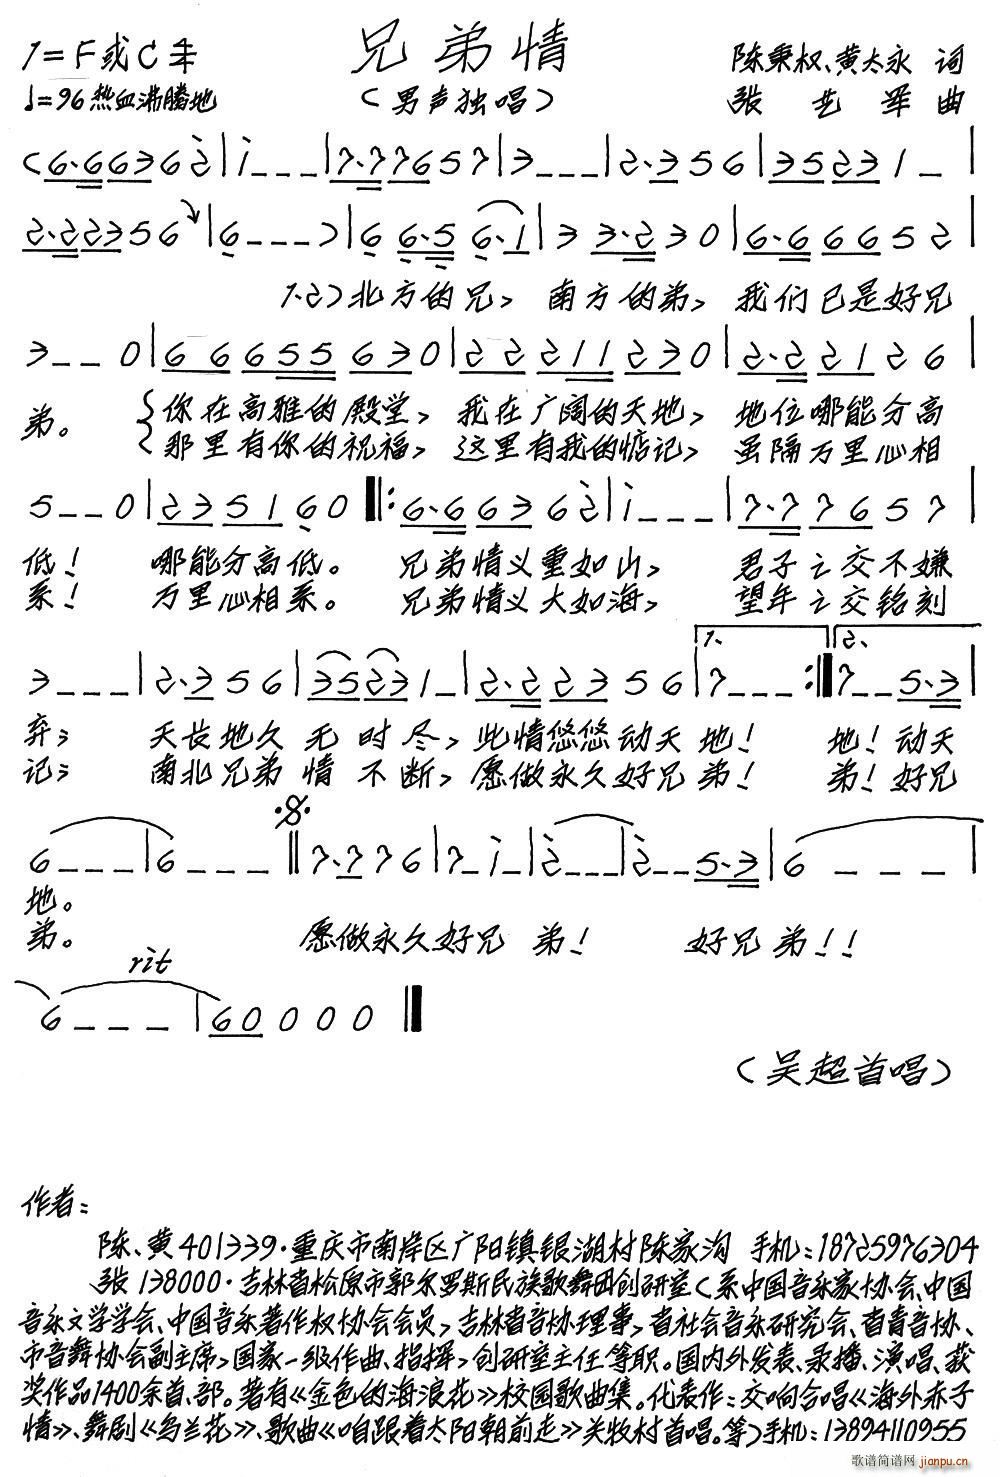 兄弟情
1=F或C 4/4
♩=96 热血沸腾地
（男声独唱）
陈秉权、黄太永 词
张艺军 曲
(6·663 6 2|1---|7·776 5 7|3---|2·3 5 6|3523 1-|
2·223 5 6|6---)|6 6·5 6·1|3 3·2 3 0|6·6 6 6 5 2|
1、2）北方的兄， 南方的弟， 我们已是好兄
3--0|6 6 6 5 5 6 3 0|2 2 2 1 1 2 3 0|2·2 2 1 2 6|
弟。 你在高雅的殿堂， 我在广阔的天地， 地位哪能分高
那里有你的祝福， 这里有我的惦记， 虽隔万里心相
5--0|2 3 5 1 6 0||:6·6 6 3 6 2|1---|7·7 7 6 5 7|
低！ 哪能分高低。 兄弟情义重如山， 君子之交不嫌
系！ 万里心相系。 兄弟情义大如海， 望年之交铭刻
1、 2、
3---|2·3 5 6|3523 1-|2·2 2 3 5 6|7---:|7--5·3|
弃； 天长地久无时尽， 此情悠悠动天地！ 地！动天
记； 南北兄弟情不断， 愿做永久好兄弟！ 弟！好兄
6---|6---||7·7 7 6|7-1-|2---|2--5·3|6---|
地。
弟。 愿做永久好兄弟！ 好兄弟！！
rit
6---|6 0 0 0 0||
（吴超首唱）
作者：
陈、黄401339·重庆市南岸区广阳镇银湖村陈家沟 手机：18725976304
张 138000·吉林省松原市郭尔罗斯民族歌舞团创研室（系中国音乐家协会、中国
音乐文学学会、中国音乐著作权协会会员，吉林省音协理事，省社会音乐研究会、省青音协、
市音舞协会副主席，国家一级作曲、指挥，创研室主任等职。国内外发表、录播、演唱、获
奖作品1400余首、部。著有《金色的海浪花》校园歌曲集。代表作：交响合唱《海外赤子
情》、舞剧《乌兰花》、歌曲《咱跟着太阳朝前走》关牧村首唱。等）手机：13894110955
歌谱简谱网
jianpu.cn